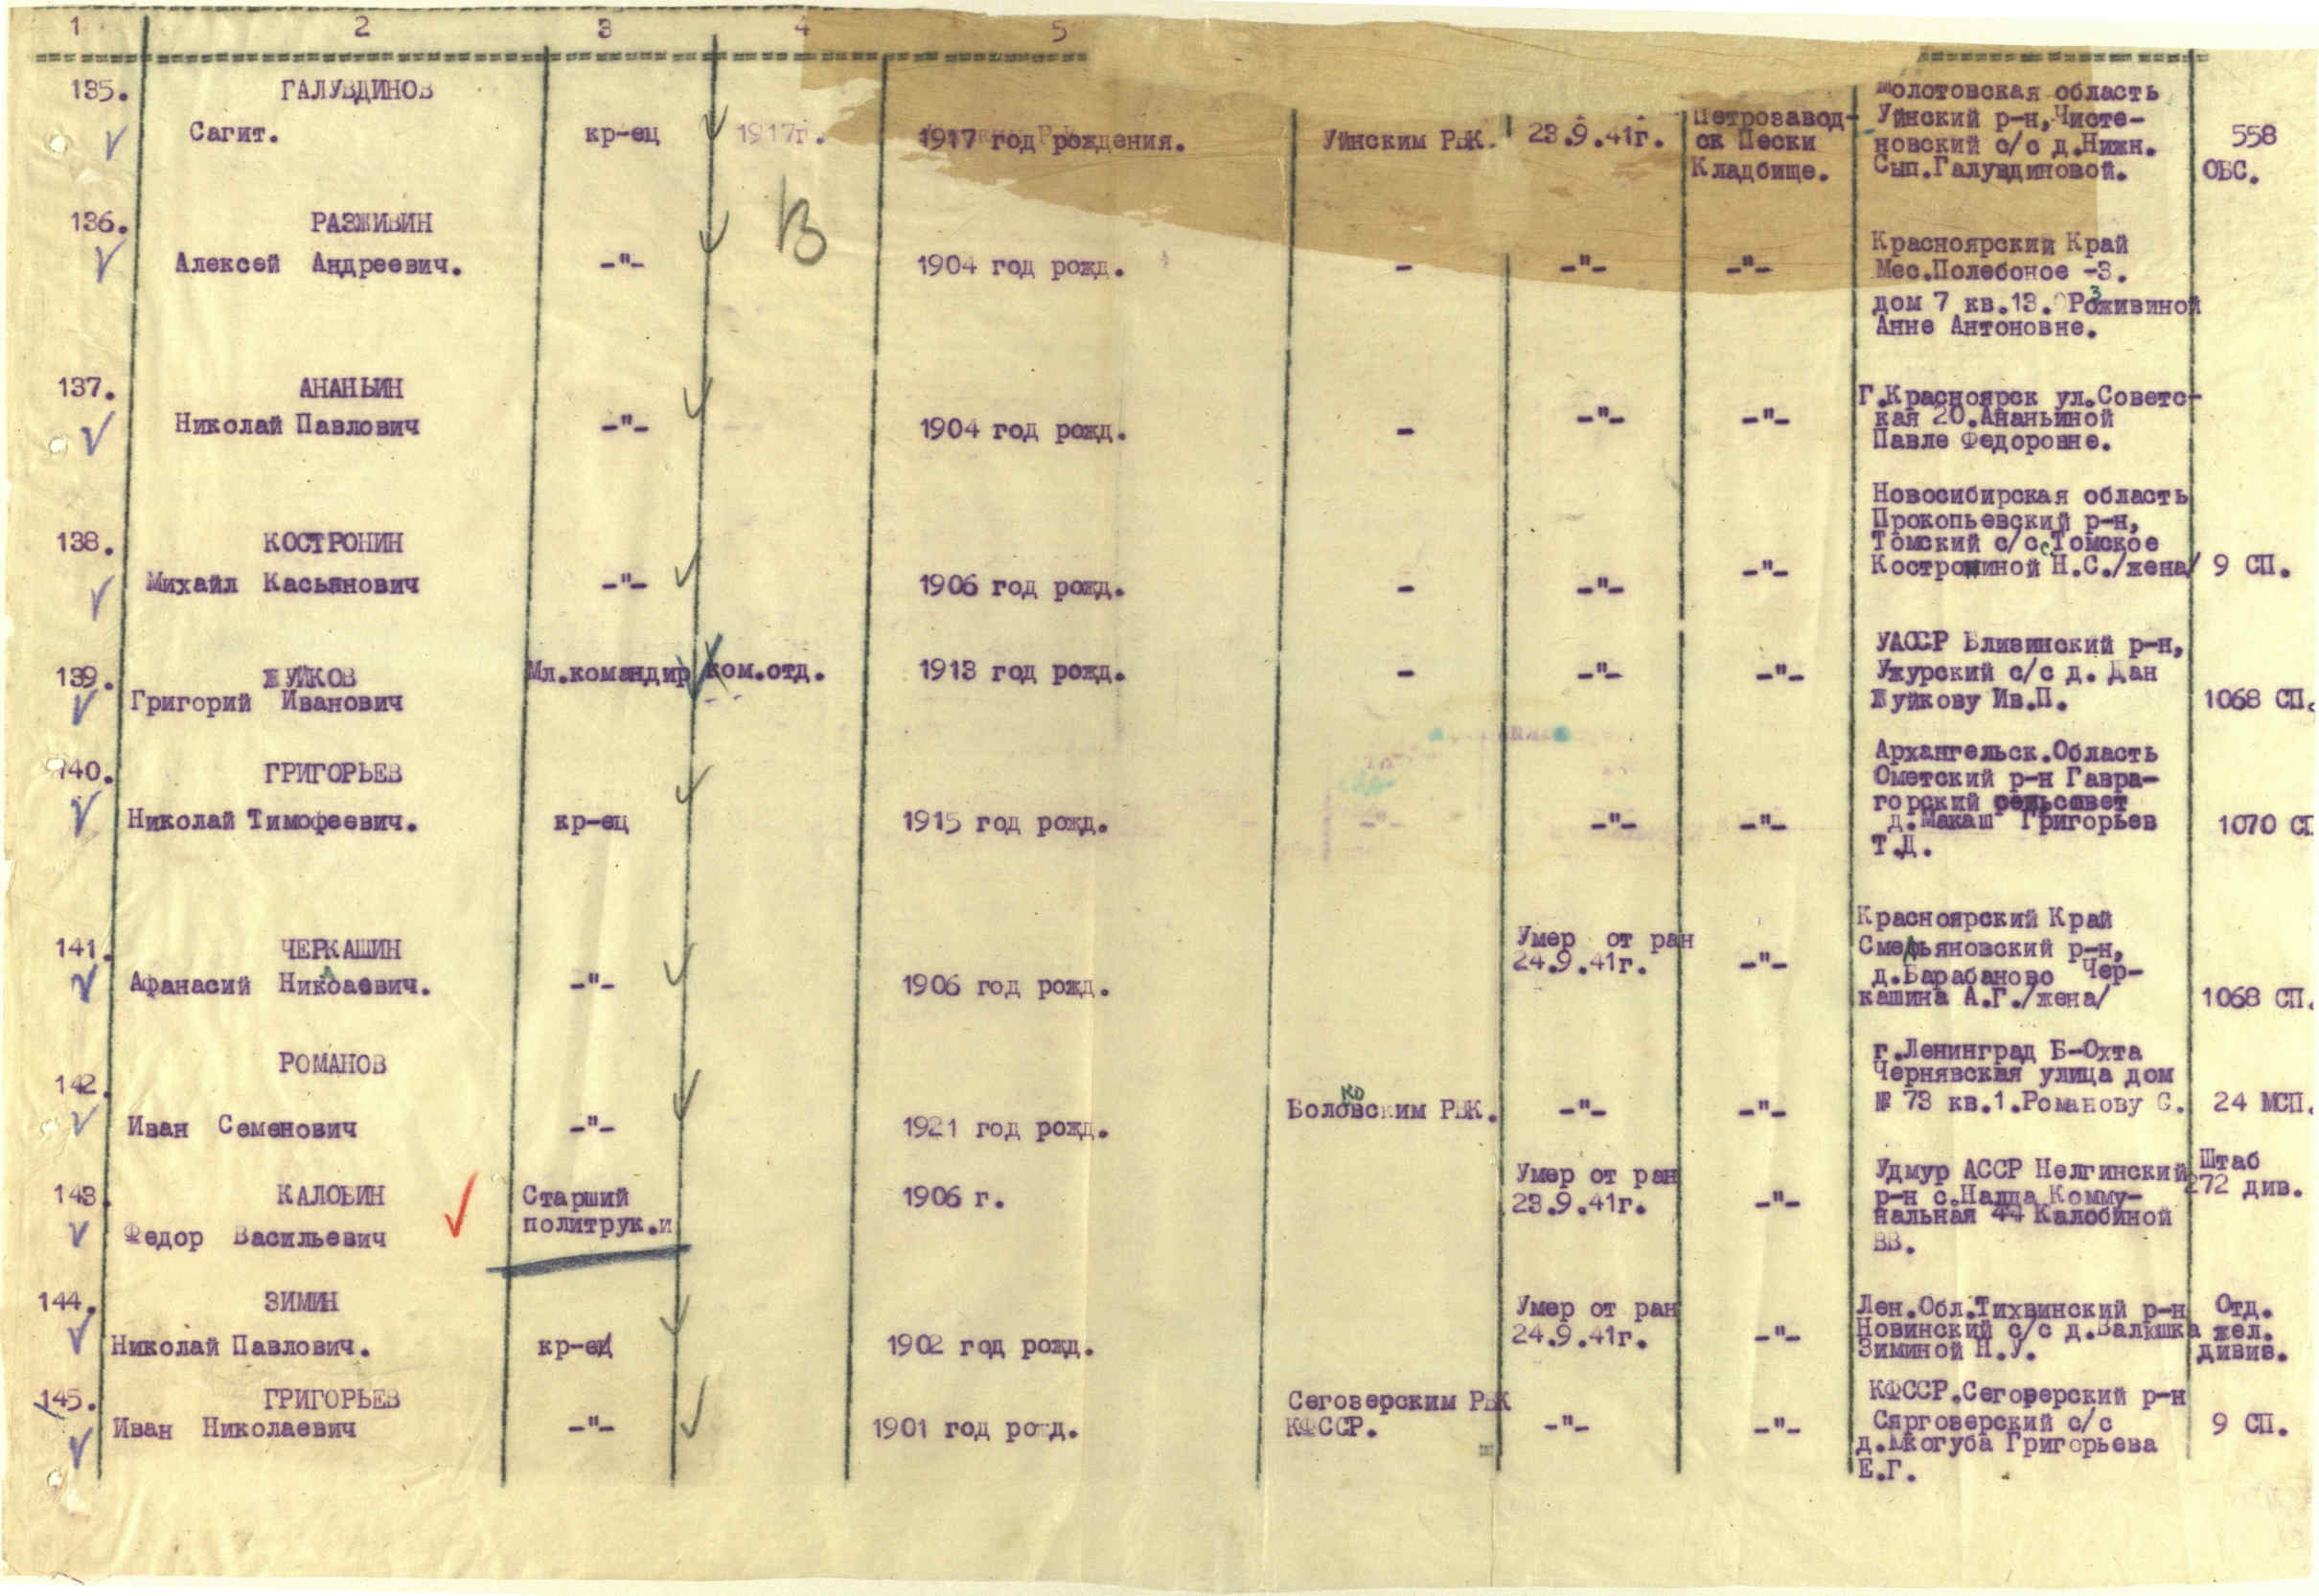 1 2 3 4 5
135. ГАЛУВДИНОВ
Сагит. кр-ец 1917г. 1917 год рождения. Уйнским РВК. 23.9.41г.
Петрозавод-
ск Пески
Кладбище.
Молотовская область
Уйнский р-н, Чисте-
новский с/с д.Нижн.
Сып.Галувдиновой.
558
ОБС.
В
136. РАЗЖИВИН
Алексей Андреевич. -"- 1904 год рожд. - -"- -"-
Красноярский Край
Мес.Полебоное -3.
дом 7 кв.13. Розживиной
Анне Антоновне.
137. АНАНЬИН
Николай Павлович -"- 1904 год рожд. - -"- -"-
Г.Красноярск ул.Советс-
кая 20.Ананьиной
Павле Федоровне.
138. КОСТРОНИН
Михайл Касьянович -"- 1906 год рожд. - -"- -"-
Новосибирская область
Прокопьевский р-н,
Томский с/с с Томское
Костроминой Н.С./жена/ 9 СП.
139. ЖУЙКОВ
Григорий Иванович
Мл.командир ком.отд. 1913 год рожд. - -"- -"-
УАССР Бливинский р-н,
Ужурский с/с д. Дан
Жуйкову Ив.П. 1068 СП.
140. ГРИГОРЬЕВ
Николай Тимофеевич. кр-ец 1915 год рожд. -"- -"- -"-
Архангельск.Область
Ометский р-н Гавра-
горский сельсовет
д.Макаш Григорьев
Т.Д.
1070 СП
141. ЧЕРКАШИН
Афанасий Николаевич. -"- 1906 год рожд.
Умер от ран
24.9.41г. -"-
Красноярский Край
Смельяновский р-н,
д.Барабаново Чер-
кашина А.Г./жена/ 1068 СП.
142. РОМАНОВ
Иван Семенович -"- 1921 год рожд. Боловским РВК. ко -"- -"-
г.Ленинград Б-Охта
Чернявская улица дом
№ 73 кв.1.Романову С. 24 МСП.
143. КАЛОБИН
Федор Васильевич
Старший
политрук.и
1906 г.
Умер от ран
23.9.41г. -"-
Удмур АССР Нелгинский
р-н с.Налда Комму-
нальная 44 Калобиной
ВВ.
Штаб
272 див.
144. ЗИМИН
Николай Павлович. кр-ец 1902 год рожд.
Умер от ран
24.9.41г. -"-
Лен.Обл.Тихвинский р-н
Новинский с/с д.Валюшка
Зиминой Н.У.
Отд.
жел.
дивив.
145. ГРИГОРЬЕВ
Иван Николаевич -"- 1901 год рожд.
Сегозерским РВК
КФССР. -"- -"-
КФССР.Сегозерский р-н
Сяргозерский с/с
д.Мкогуба Григорьева
Е.Г.
9 СП.